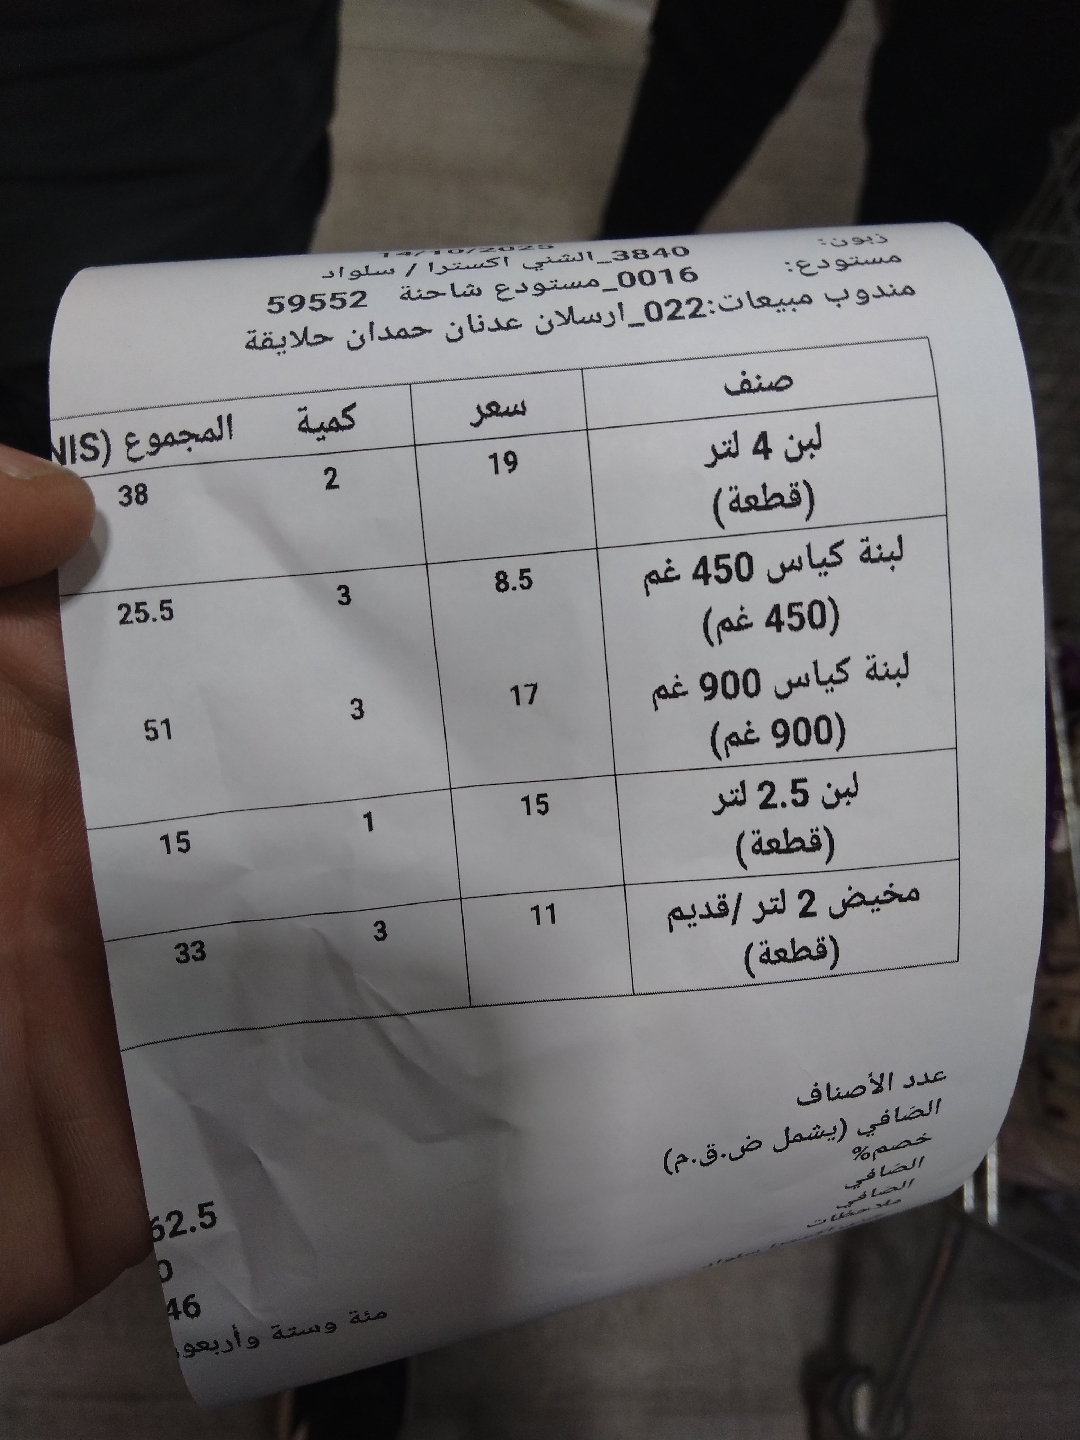 14/10/2025
زبون: 3840_الشني اكسترا / سلواد
مستودع: 0016_مستودع شاحنة 59552
مندوب مبيعات:022_ارسلان عدنان حمدان حلايقة
صنف سعر كمية المجموع (NIS
لبن 4 لتر 19 2 38
(قطعة)
لبنة كياس 450 غم 8.5 3 25.5
(450 غم)
لبنة كياس 900 غم 17 3 51
(900 غم)
لبن 2.5 لتر 15 1 15
(قطعة)
مخيض 2 لتر /قديم 11 3 33
(قطعة)
عدد الأصناف
الصافي (يشمل ض.ق.م) 62.5
خصم% 0
الصافي 46
الصافي مئة وستة وأربعو
ملاحظات